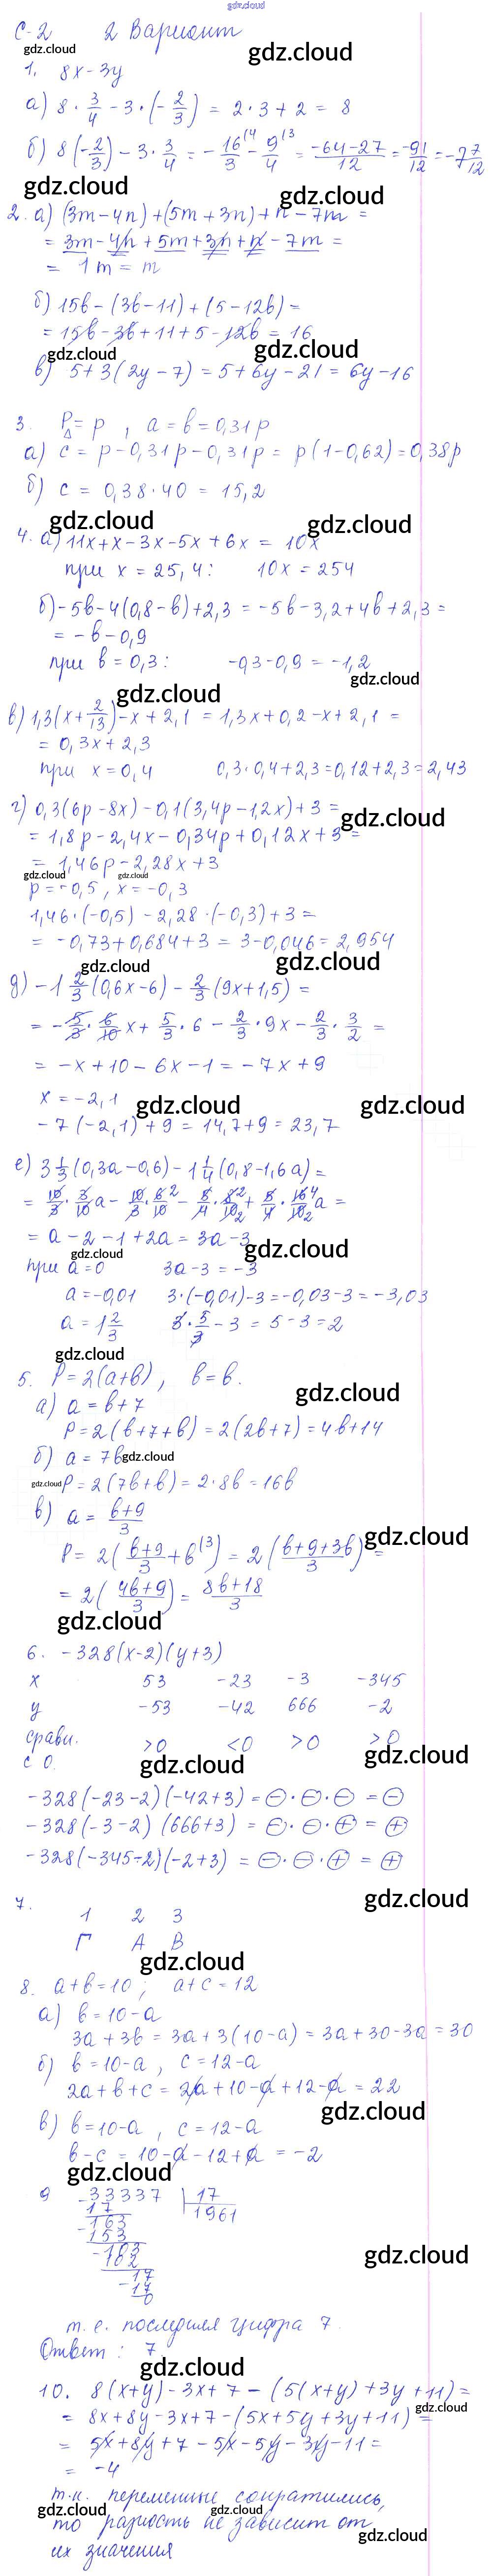 gdz.cloud
С-2 2 Вариант
gdz.cloud gdz.cloud
1. 8x-3y
а) 8 · 3/4 - 3 · (-2/3) = 2·3+2 = 8
б) 8(-2/3) - 3·3/4 = -16/3 (4 - 9/4 (3 = (-64-27)/12 = -91/12 = -7 7/12
gdz.cloud gdz.cloud
2. а) (3m-4n)+(5m+3n)+n-7m =
= 3m-4n+5m+3n+n-7m =
= 1m = m
б) 15b-(3b-11)+(5-12b) =
= 15b-3b+11+5-12b = 16
gdz.cloud gdz.cloud
в) 5+3(2y-7) = 5+6y-21 = 6y-16
3. P△ = p, a=b=0,31p
а) c = p-0,31p-0,31p = p(1-0,62) = 0,38p
б) c = 0,38·40 = 15,2
gdz.cloud gdz.cloud
4. а) 11x+x-3x-5x+6x = 10x
при x = 25,4: 10x = 254
б) -5b-4(0,8-b)+2,3 = -5b-3,2+4b+2,3 =
= -b-0,9
при b = 0,3: -0,3-0,9 = -1,2
gdz.cloud
gdz.cloud
в) 1,3(x+2/13)-x+2,1 = 1,3x+0,2-x+2,1 =
= 0,3x+2,3
при x = 0,4 0,3·0,4+2,3=0,12+2,3=2,43
г) 0,3(6p-8x)-0,1(3,4p-1,2x)+3 =
gdz.cloud
= 1,8p-2,4x-0,34p+0,12x+3 =
= 1,46p-2,28x+3
gdz.cloud gdz.cloud
p=-0,5, x=-0,3
1,46·(-0,5) - 2,28·(-0,3)+3 =
= -0,73+0,684+3 = 3-0,046 = 2,954
gdz.cloud gdz.cloud
д) -1 2/3 (0,6x-6) - 2/3 (9x+1,5) =
= -5/3 · 6/10 x + 5/3 · 6 - 2/3 · 9x - 2/3 · 3/2 =
= -x+10-6x-1 = -7x+9
x = -2,1
gdz.cloud gdz.cloud
-7(-2,1)+9 = 14,7+9 = 23,7
е) 3 1/3 (0,3a-0,6) - 1 1/4 (0,8-1,6a) =
= 10/3 · 3/10 a - 10/3 · 6 2/10 - 5/4 · 8 2/10 2 + 5/4 · 16 4/10 2 a =
= a-2-1+2a = 3a-3
gdz.cloud gdz.cloud
при a=0 3a-3 = -3
a=-0,01 3·(-0,01)-3=-0,03-3=-3,03
a = 1 2/3 3·5/3 - 3 = 5-3=2
gdz.cloud
5. P=2(a+b), b=b.
gdz.cloud
а) a = b+7
P=2(b+7+b) = 2(2b+7) = 4b+14
б) a = 7b
gdz.cloud
gdz.cloud P = 2(7b+b) = 2·8b = 16b
в) a = (b+9)/3
gdz.cloud
P = 2((b+9)/3 + b (3) = 2((b+9+3b)/3) =
= 2((4b+9)/3) = (8b+18)/3
gdz.cloud
6. -328(x-2)(y+3)
x 53 -23 -3 -345
y -53 -42 666 -2
сравн. >0 <0 >0 >0
с 0.
gdz.cloud gdz.cloud
-328(-23-2)(-42+3) = ⊖·⊖·⊖ = ⊖
-328(-3-2)(666+3) = ⊖·⊖·⊕ = ⊕
-328(-345-2)(-2+3) = ⊖·⊖·⊕ = ⊕
7.
gdz.cloud
1 2 3
Г А В
gdz.cloud
8. a+b=10; a+c=12
а) b=10-a
3a+3b = 3a+3(10-a) = 3a+30-3a = 30
б) b=10-a, c=12-a
2a+b+c = 2a+10-a+12-a = 22
gdz.cloud
в) b=10-a, c=12-a
b-c = 10-a-12+a = -2
gdz.cloud
9 33337 | 17
-17 1961
163
-153
gdz.cloud
103
-102
17
-17
0
т.е. последняя цифра 7.
Ответ: 7.
gdz.cloud
10. 8(x+y)-3x+7-(5(x+y)+3y+11) =
gdz.cloud
= 8x+8y-3x+7-(5x+5y+3y+11) =
= 5x+8y+7-5x-5y-3y-11 =
= -4
т.к. переменные сократились,
gdz.cloud gdz.cloud
то разность не зависит от
gdz.cloud
их значения